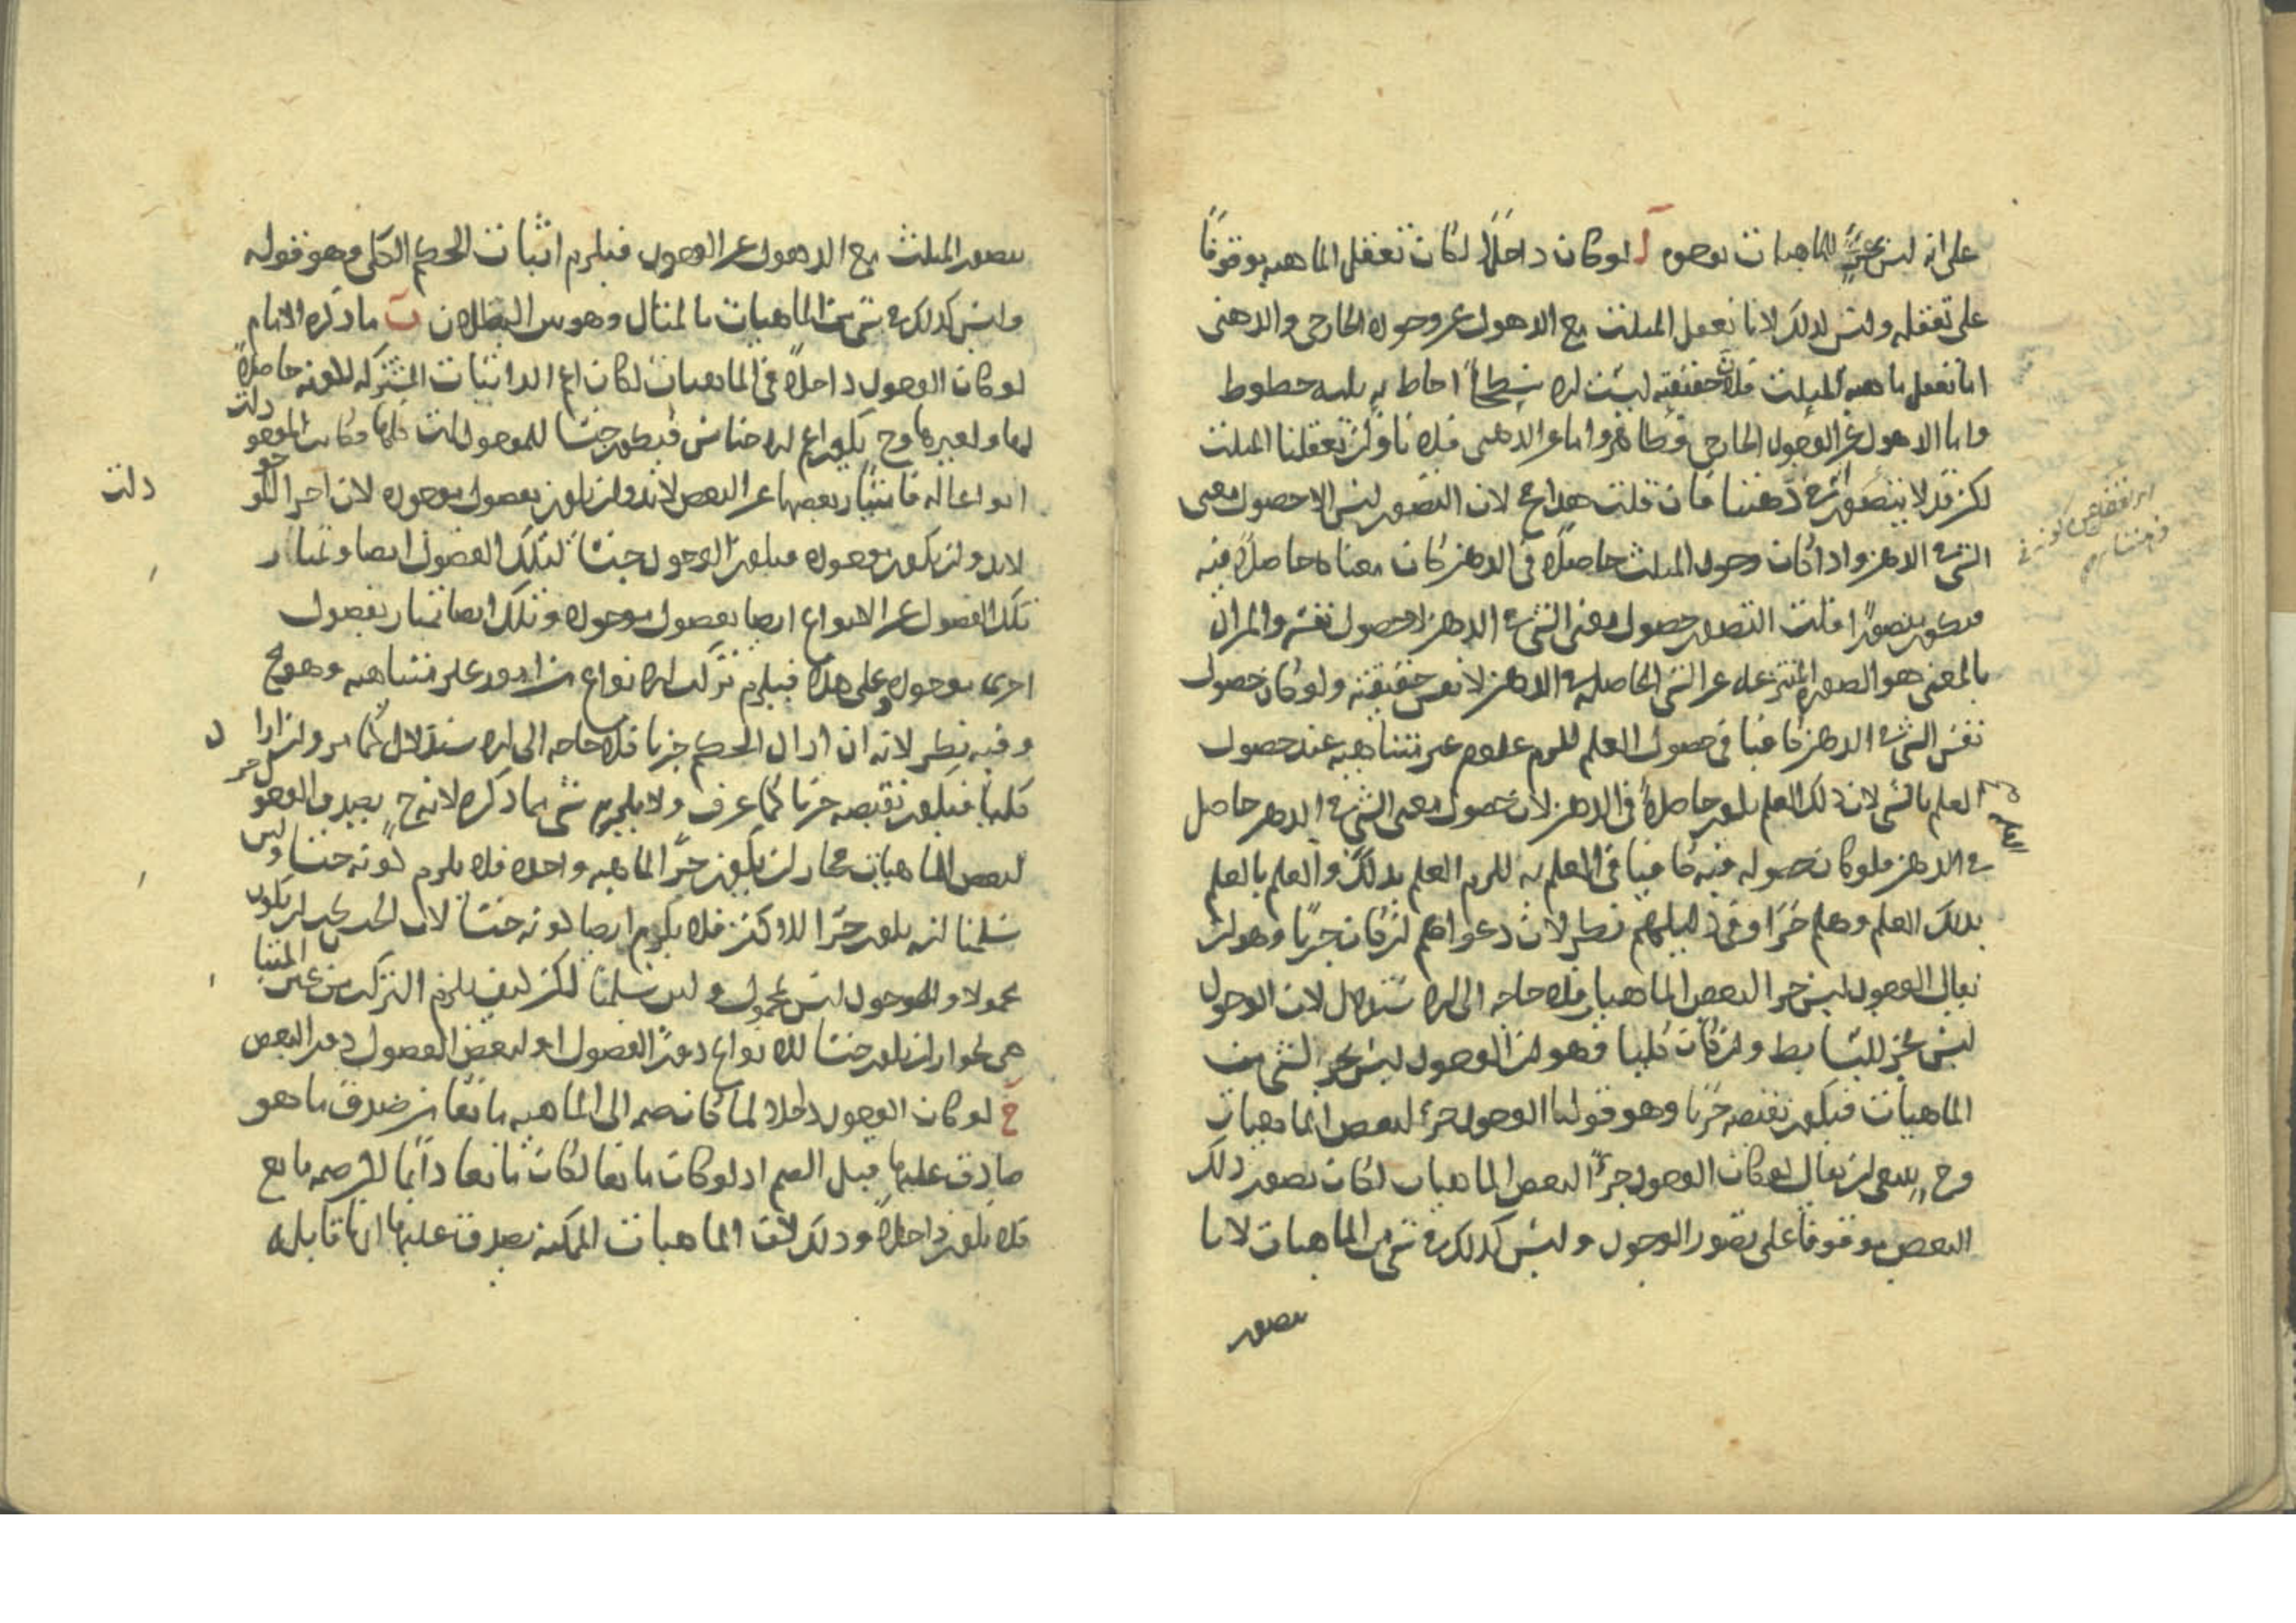 على انه ليس بجزء للماهيات بوجوه ا لو كان داخلاً لكان تعقل الماهيه موقوفاً
على تعقله وليس كذلك لانا نعقل المثلث مع الذهول عن وجوده الخارجى والذهنى
اما تعقل ماهيه المثلث فلان حقيقته ليست الا سطحاً احاط به ثلثه خطوط
واما الذهول عن الوجود الخارجى فظاهر واما عن الذهنى فلانا وان تعقلنا المثلث
لكن قد لا نتصور فى ذهننا فان قلت هذا مح لان التصور ليس الا حصول معنى
الشى فى الذهن واذا كان وجود المثلث حاصلاً فى الذهن كان معناه حاصلاً فيه
فيكون متصوراً قلت التصور حصول معنى الشى فى الذهن لا حصول نفسه والمراد
بالمعنى هو الصوره المنتزعه عن الشى الحاصله فى الذهن لا نفس حقيقته ولو كان حصول
نفس الشى فى الذهن كافيا فى حصول العلم للزم علوم غير متناهيه عند حصول
العلم بالشى لان ذلك العلم يكون حاصلاً فى الذهن لان حصول معنى الشى فى الذهن حاصل
فى الذهن فلو كان حصوله فيه كافيا فى العلم به للزم العلم بذلك والعلم بالعلم
بذلك العلم وهلم جرا وفى دليلهم نظر لان دعواهم ان كان جزيا وهو ان
يقال الوجود ليس جزا لبعض الماهيات فلا حاجه الى الاستدلال لان الوجود
ليس بجز للبسايط وان كان كليا وهو ان الوجود ليس بجز لشى من
الماهيات فيكون نقيضه جزيا وهو قولنا الوجود جزء لبعض الماهيات
وح ينبغى ان يقال لو كان الوجود جزءً لبعض الماهيات لكان تصور ذلك
البعض موقوفا على تصور الوجود وليس كذلك فى شى من الماهيات لانا
نتصور
نتصور المثلث مع الذهول عن الوجود فيلزم اثبات الحكم الكلى وهو قوله
وليس كذلك فى شى من الماهيات بالمثال وهو بين البطلان ب ما ذكره الامام
لو كان الوجود داخلاً فى الماهيات لكان اعم الذاتيات المشتركه لكونه حاصلاً
لها ولغيرها وح يكون اعم الاجناس فيكون جنسا للموجودات كلها وكانت الموجودات
انواعا له فامتياز بعضها عن البعض لابد وان يكون بفصول موجوده لان اجزا الموجود
لابد وان يكون موجوده فيكون الوجود جنساً لتلك الفصول ايضا وتمتاز
تلك الفصول عن الانواع ايضا بفصول موجوده وتلك ايضا تمتاز بفصول
اخرى موجوده وعلى هذا فيلزم تركب الانواع من امور غير متناهيه وهو مح
وفيه نظر لانه ان اراد الحكم جزيا فلا حاجه الى الاستدلال كما مر وان اراد
كليا فيكون نقيضه جزيا كما عرف ولا يلزم شى مما ذكره لانه ح يصدق الوجود جز
لبعض الماهيات فجاز ان يكون جزأ لماهيه واحده فلا يلزم كونه جنسا ولئن
سلمنا انه يكون جزا للاكثر فلا يلزم ايضا كونه جنسا لان الجنس يجب ان يكون
محمولا والوجود ليس بمحمول ولئن سلمنا لكن كيف يلزم التركب من غير المتناهى
هى لجواز ان يكون جنسا للانواع دون الفصول او لبعض الفصول دون البعض
ج لو كان الوجود داخلا لما كان ضمه الى الماهيه مانعا من صدق ما هو
صادق عليها قبل الضم اذ لو كان مانعا لكان مانعا دائما لان ضمه مانع
فلا يكون داخلاً وذلك لان الماهيات الممكنه يصدق عليها انها قابله
دات